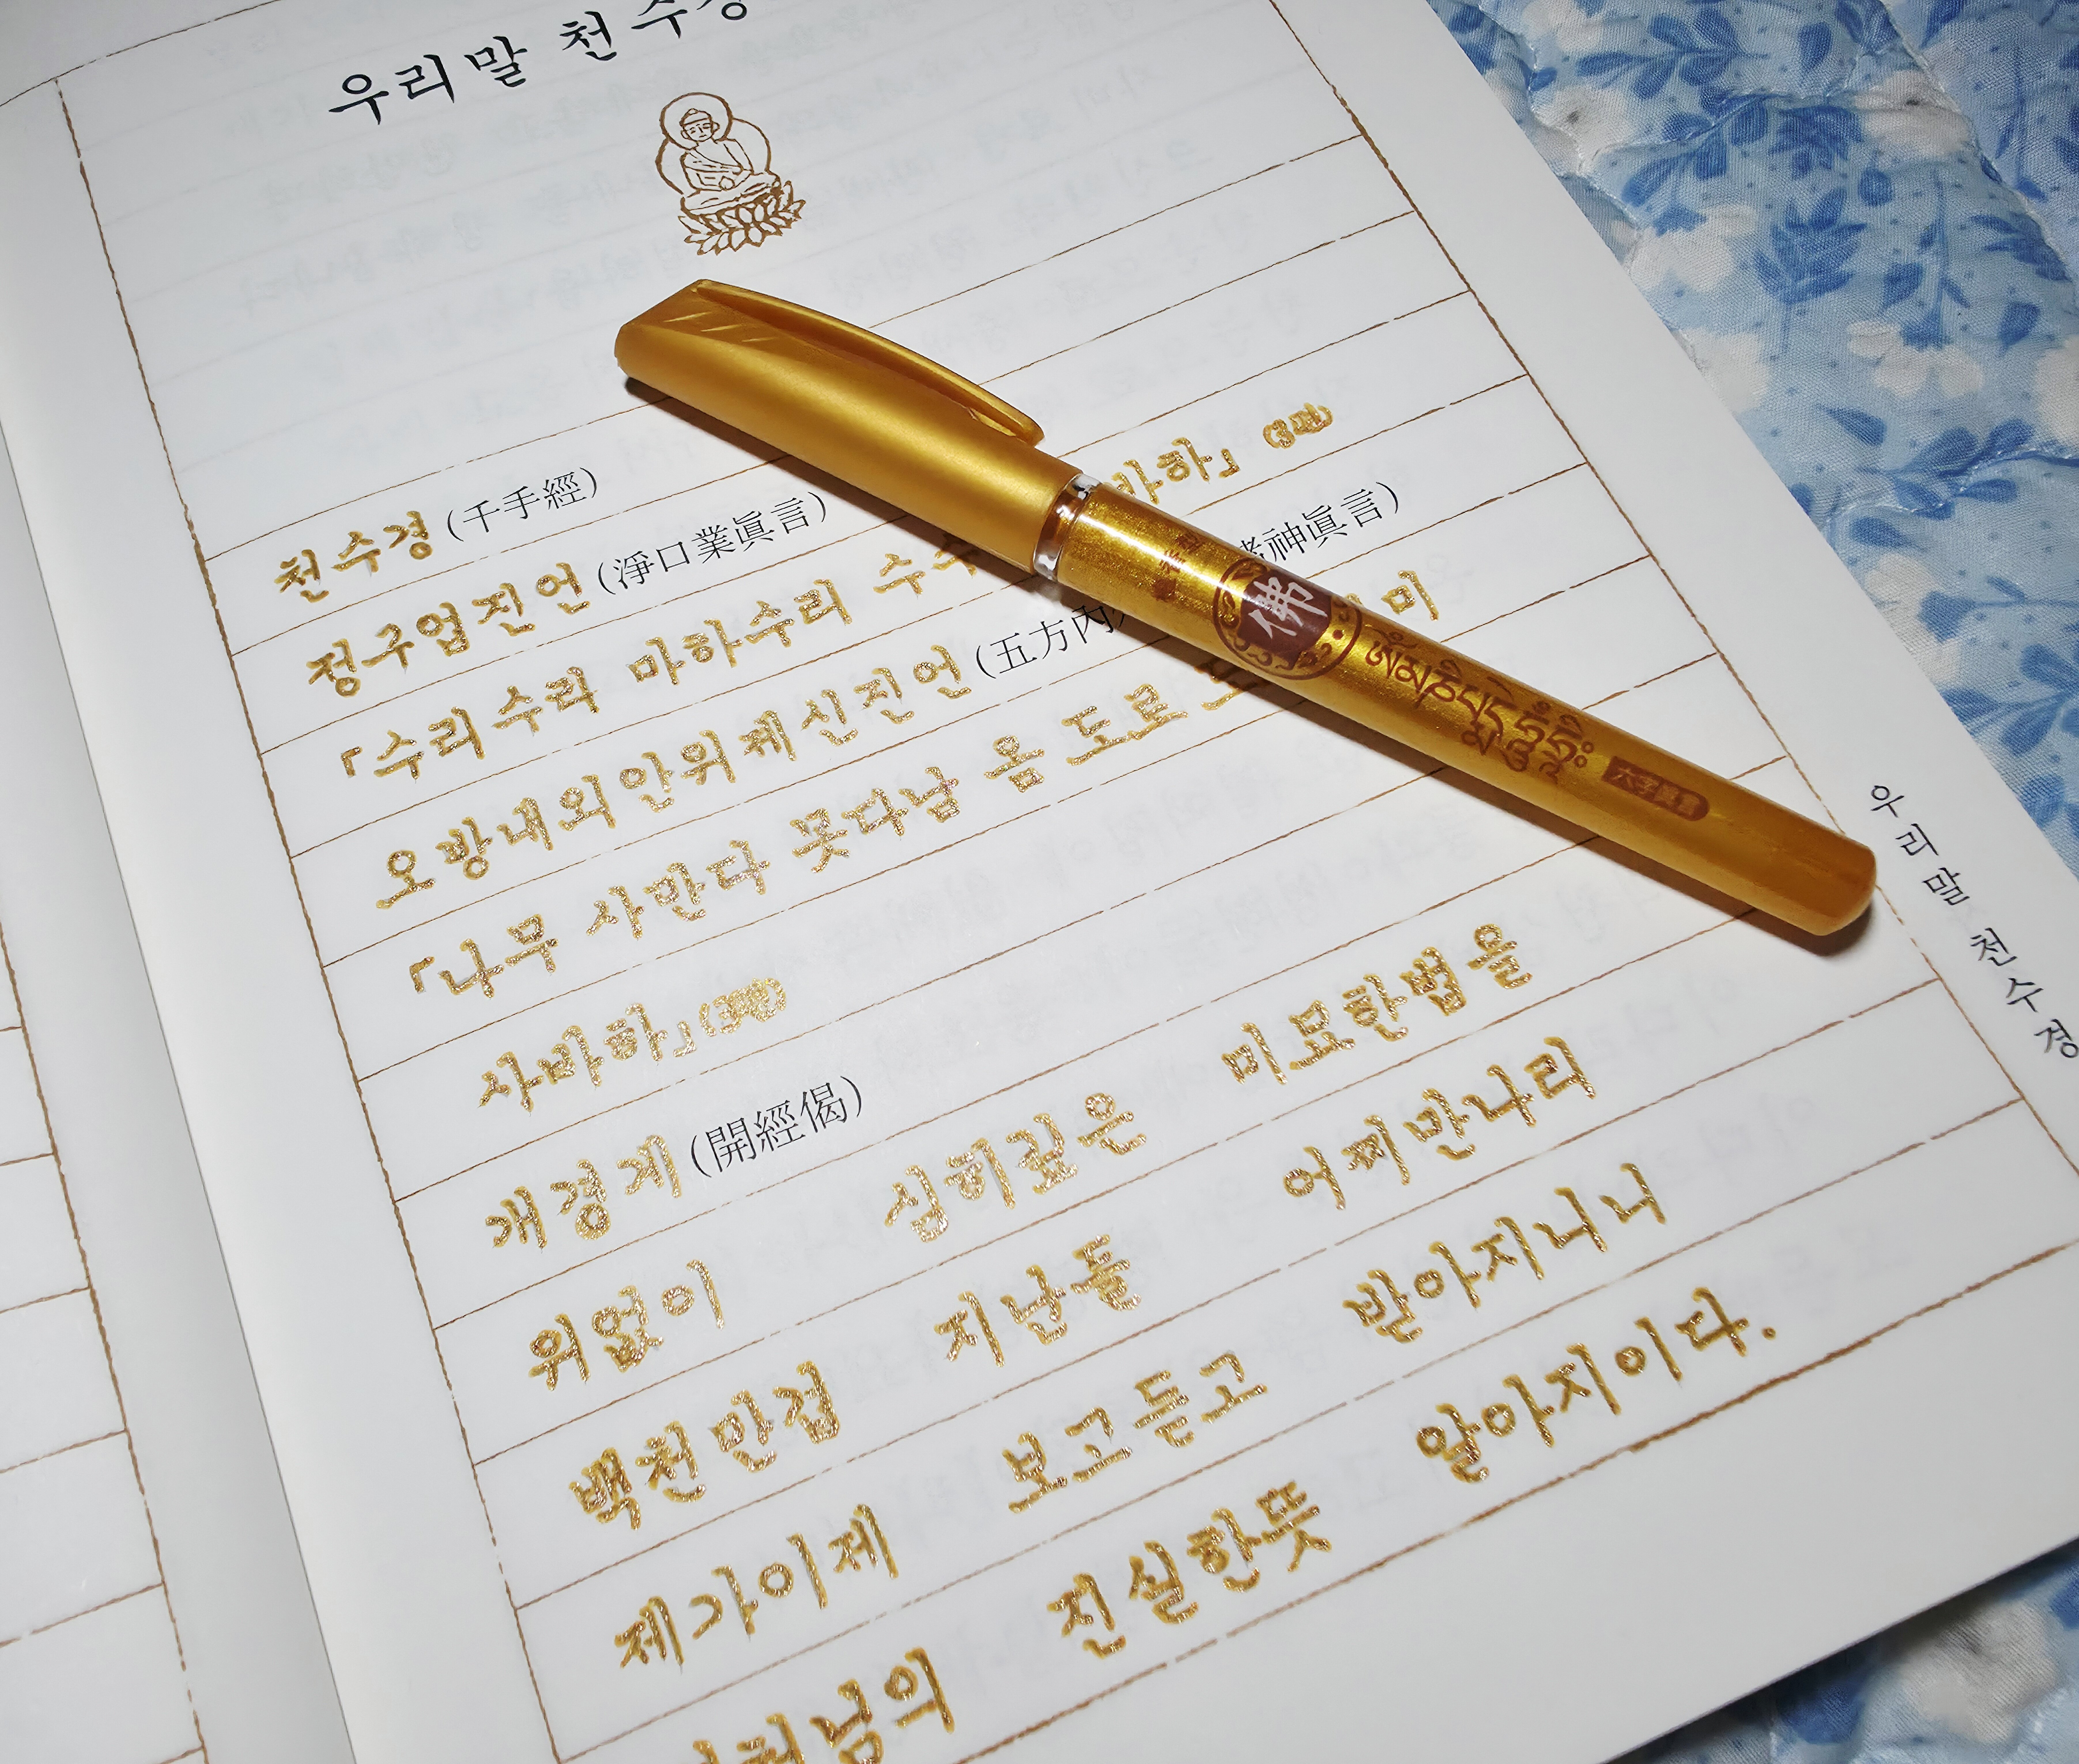 우리말 천수경
천수경 (千手經)
정구업진언 (淨口業眞言)
「수리수리 마하수리 수수 바하」 (3번)
오방내외안위제신진언 (五方內 諸神眞言)
「나무 사만다 못다남 옴 도로 미
사바하」 (3번)
개경게 (開經偈)
위없이 심히깊은 미묘한법을
백천만겁 지난들 어찌만나리
제가이제 보고듣고 받아지니니
진실한뜻 알아지이다.
佛
우리말 천수경